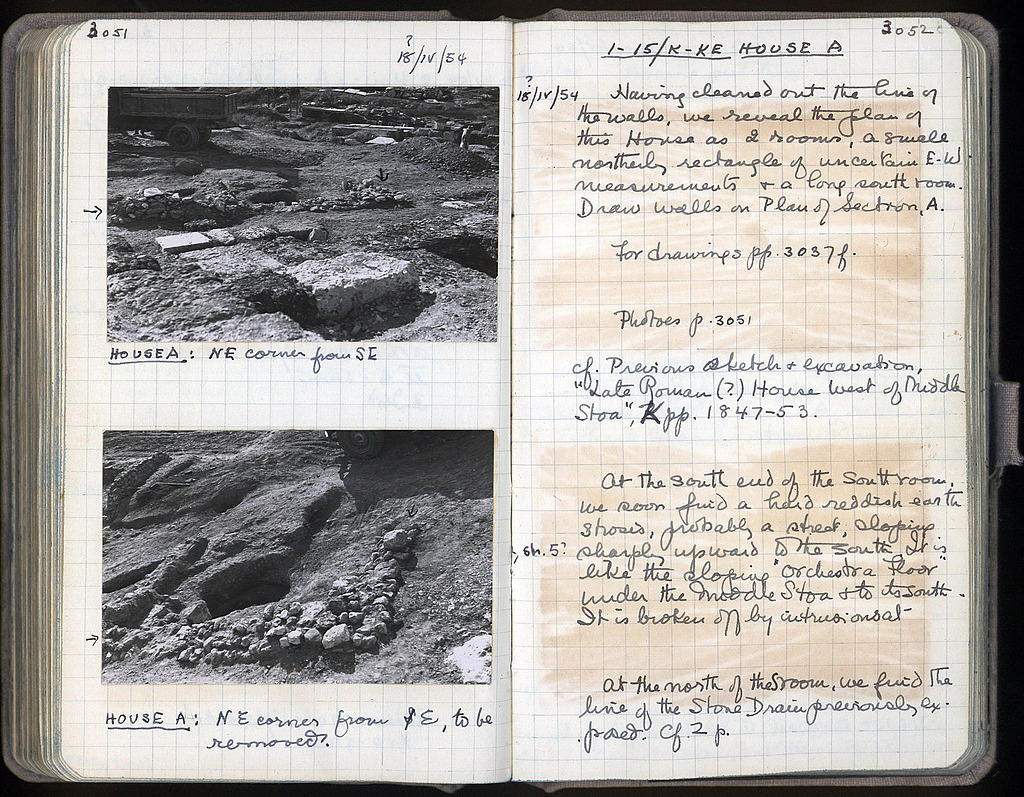 3051
?
18/IV/54
HOUSE A: NE corner from SE
HOUSE A: NE corner from SE, to be
removed.
3052
1-15/K-KE HOUSE A
?
18/IV/54 Having cleaned out the line of
the walls, we reveal the plan of
this House as 2 rooms, a small
northerly rectangle of uncertain E-W
measurements + a long south room.
Draw walls on Plan of Section, A.
For drawings pp. 3037f.
Photoes p. 3051
cf. Previous sketch + excavation,
"Late Roman (?) House West of Middle
Stoa", K pp. 1847-53.
At the south end of the South room,
we soon find a hard reddish earth
strosis, probably a street, sloping
sh. 5? sharply upward to the south. It is
like the sloping "Orchestra Floor"
under the Middle Stoa + to its South.
It is broken off by intrusions at
At the north of the S room, we find the
line of the Stone Drain previously ex-
posed. Cf. Z p.